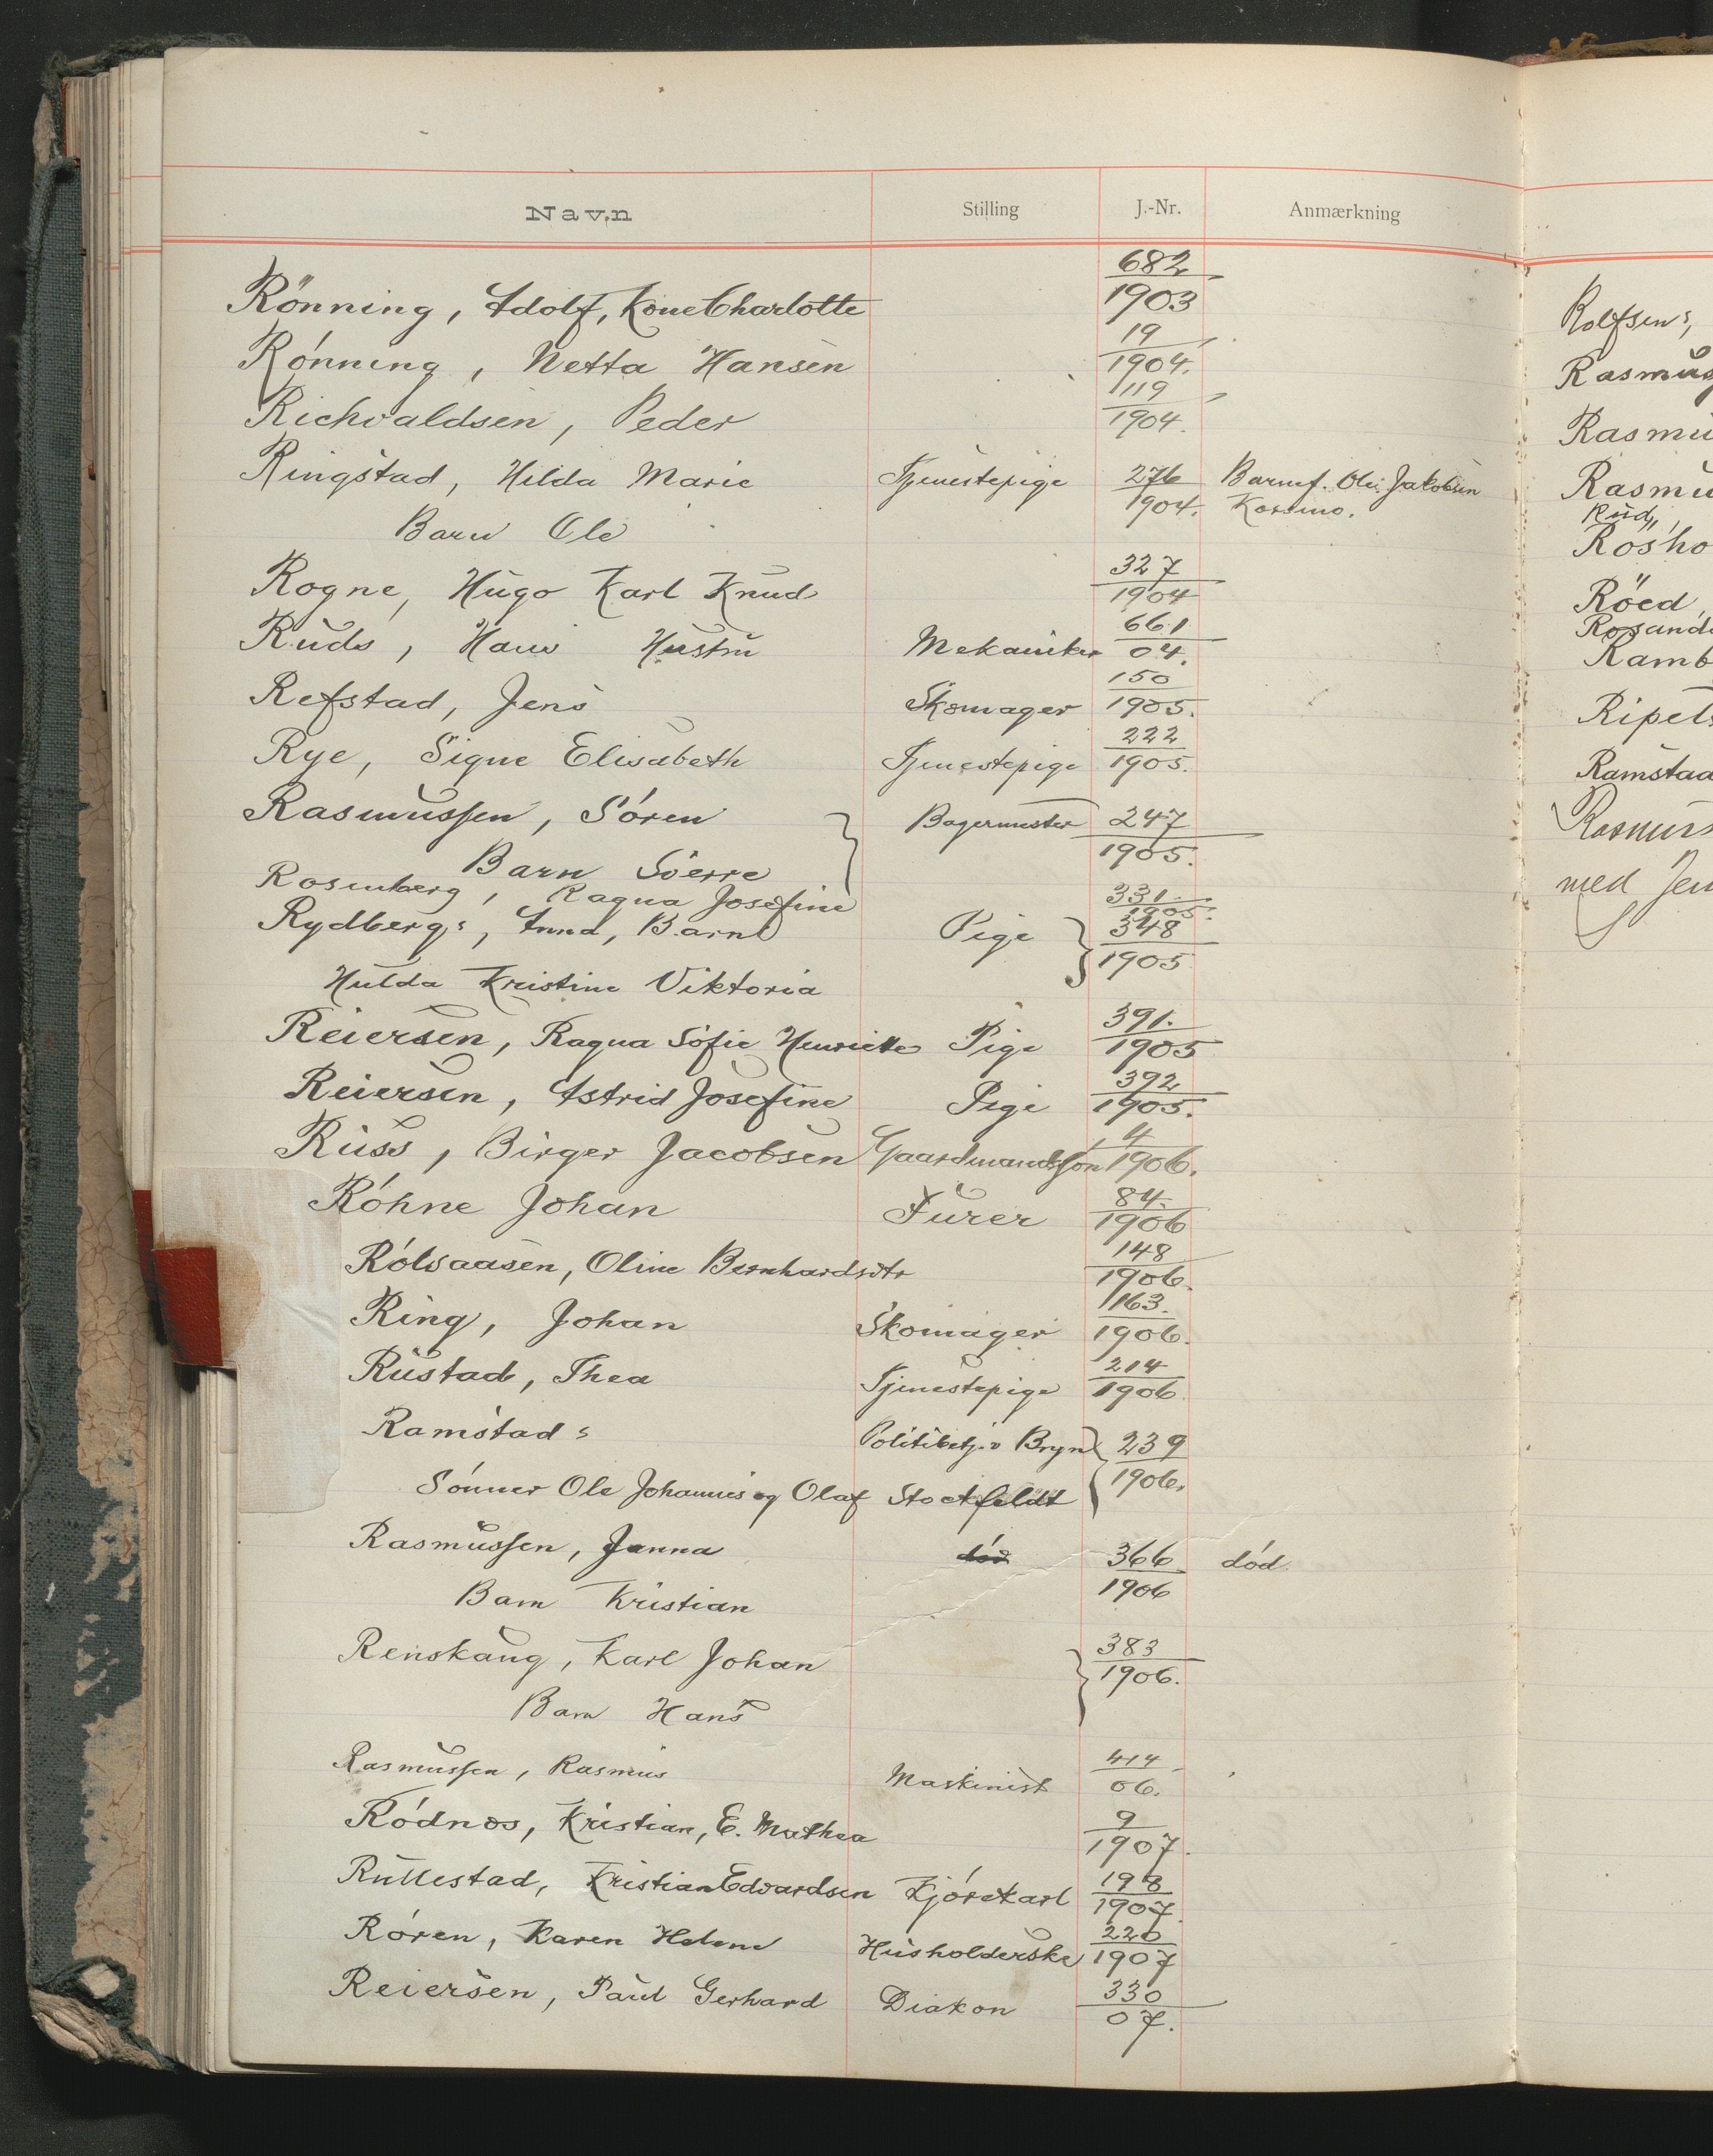 Navn Stilling J.-Nr. Anmærkning
Rönning, Adolf, Kone Charlotte 682/1903
Rönning, Netta Hansen 19/1904.
Richvaldsen, Peder 119/1904.
Ringstad, Hilda Marie Tjenestepige 276/1904. Barnef. Ole Jakobsen
Barn Ole
Rogne, Hugo Karl Knud 327/1904
Ruds, Hans Hustru Mekaniker 661/04.
Refstad, Jens Skomager 150/1905.
Rye, Signe Elisabeth Tjenestepige 222/1905.
Rasmussen, Sören Bagermester 247/1905.
Barn Sverre
Rosenberg, Ragna Josefine 331/1905.
Rydbergs, Anna, Barn Pige 348/1905
Hulda Kristine Viktoria
Reiersen, Ragna Sofie Henriette Pige 391/1905
Reiersen, Astrid Josefine Pige 392/1905.
Russ, Birger Jacobsen Gaardmandssøn 4/1906.
Röhne Johan Furer 84/1906
Rölsaasen, Oline Bernhardsdtr 148/1906.
Ring, Johan Skomager 163/1906.
Rustad, Thea Tjenestepige 214/1906
Ramstads Politibetj. Bryn 239/1906.
Sönner Ole Johannes og Olaf Stockfeldt
Rasmussen, Janna död 366/1906 död
Barn Kristian
Renskaug, Karl Johan 383/1906.
Barn Hans
Rasmussen, Rasmus Maskinist 414/06.
Rödnes, Kristian, E. Mathea 9/1907.
Rullestad, Kristian Edvardsen Kjörekarl 198/1907.
Rören, Karen Helene Husholderske 220/1907
Reiersen, Paul Gerhard Diakon 330/07.
Rolfsens,
Rasmus
Rasmu
Rasmu
Rud,
Rosho
Röed,
Rosand
Ramb
Ripels
Ramstad
Rasmuss
med Jen